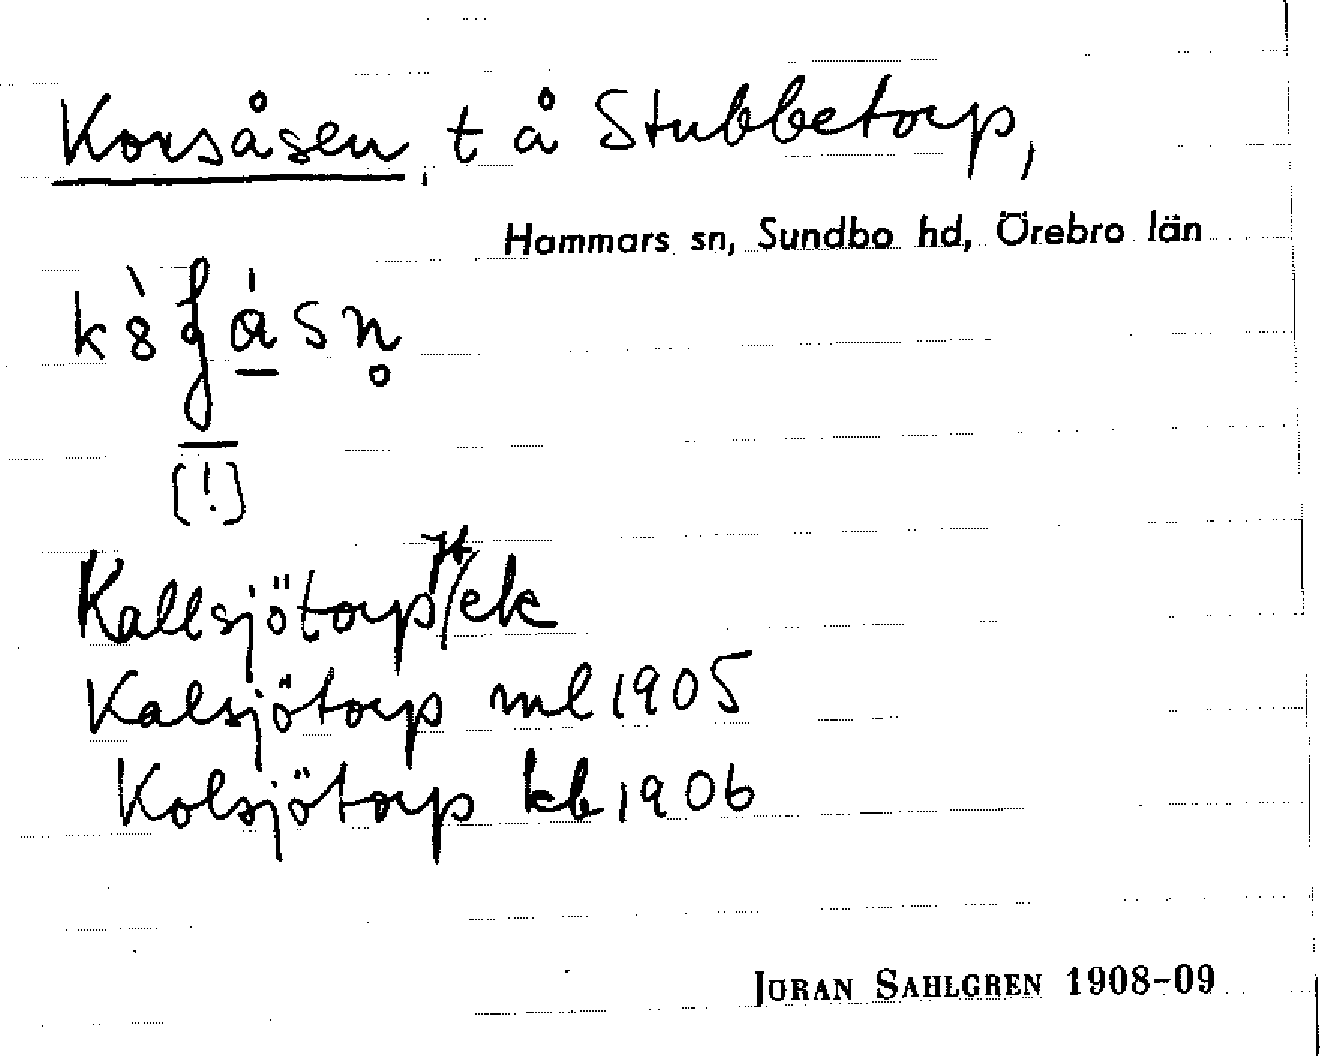 Korsåsen, t å Stubbetorp,
Hammars sn, Sundbo hd, Örebro län
[!]
Kallsjötorp jk/ek
Kalsjötorp ml 1905
Kolsjötorp kb 1906
JÖRAN SAHLGREN 1908-09